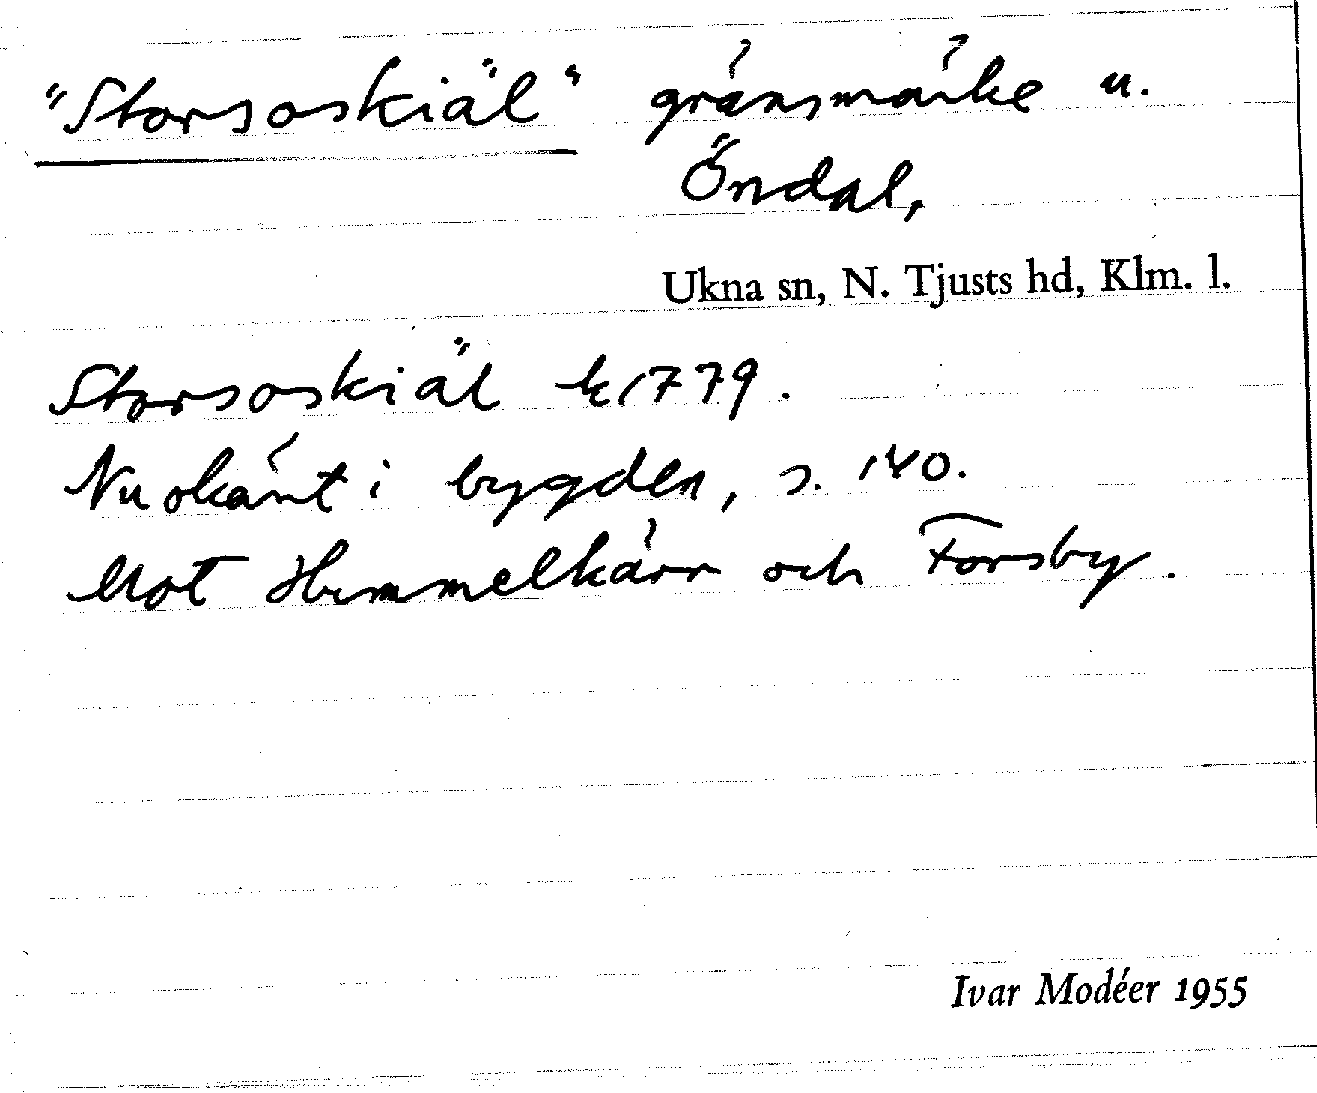 "Storsoskiäl" gränsmärke u.
Öndal,
Ukna sn, N. Tjusts hd, Klm. l.
Storsoskiäl k 1779.
Nu okänt i bygden, s. 140.
Mot Himmelkärr och Forsby.
Ivar Modéer 1955